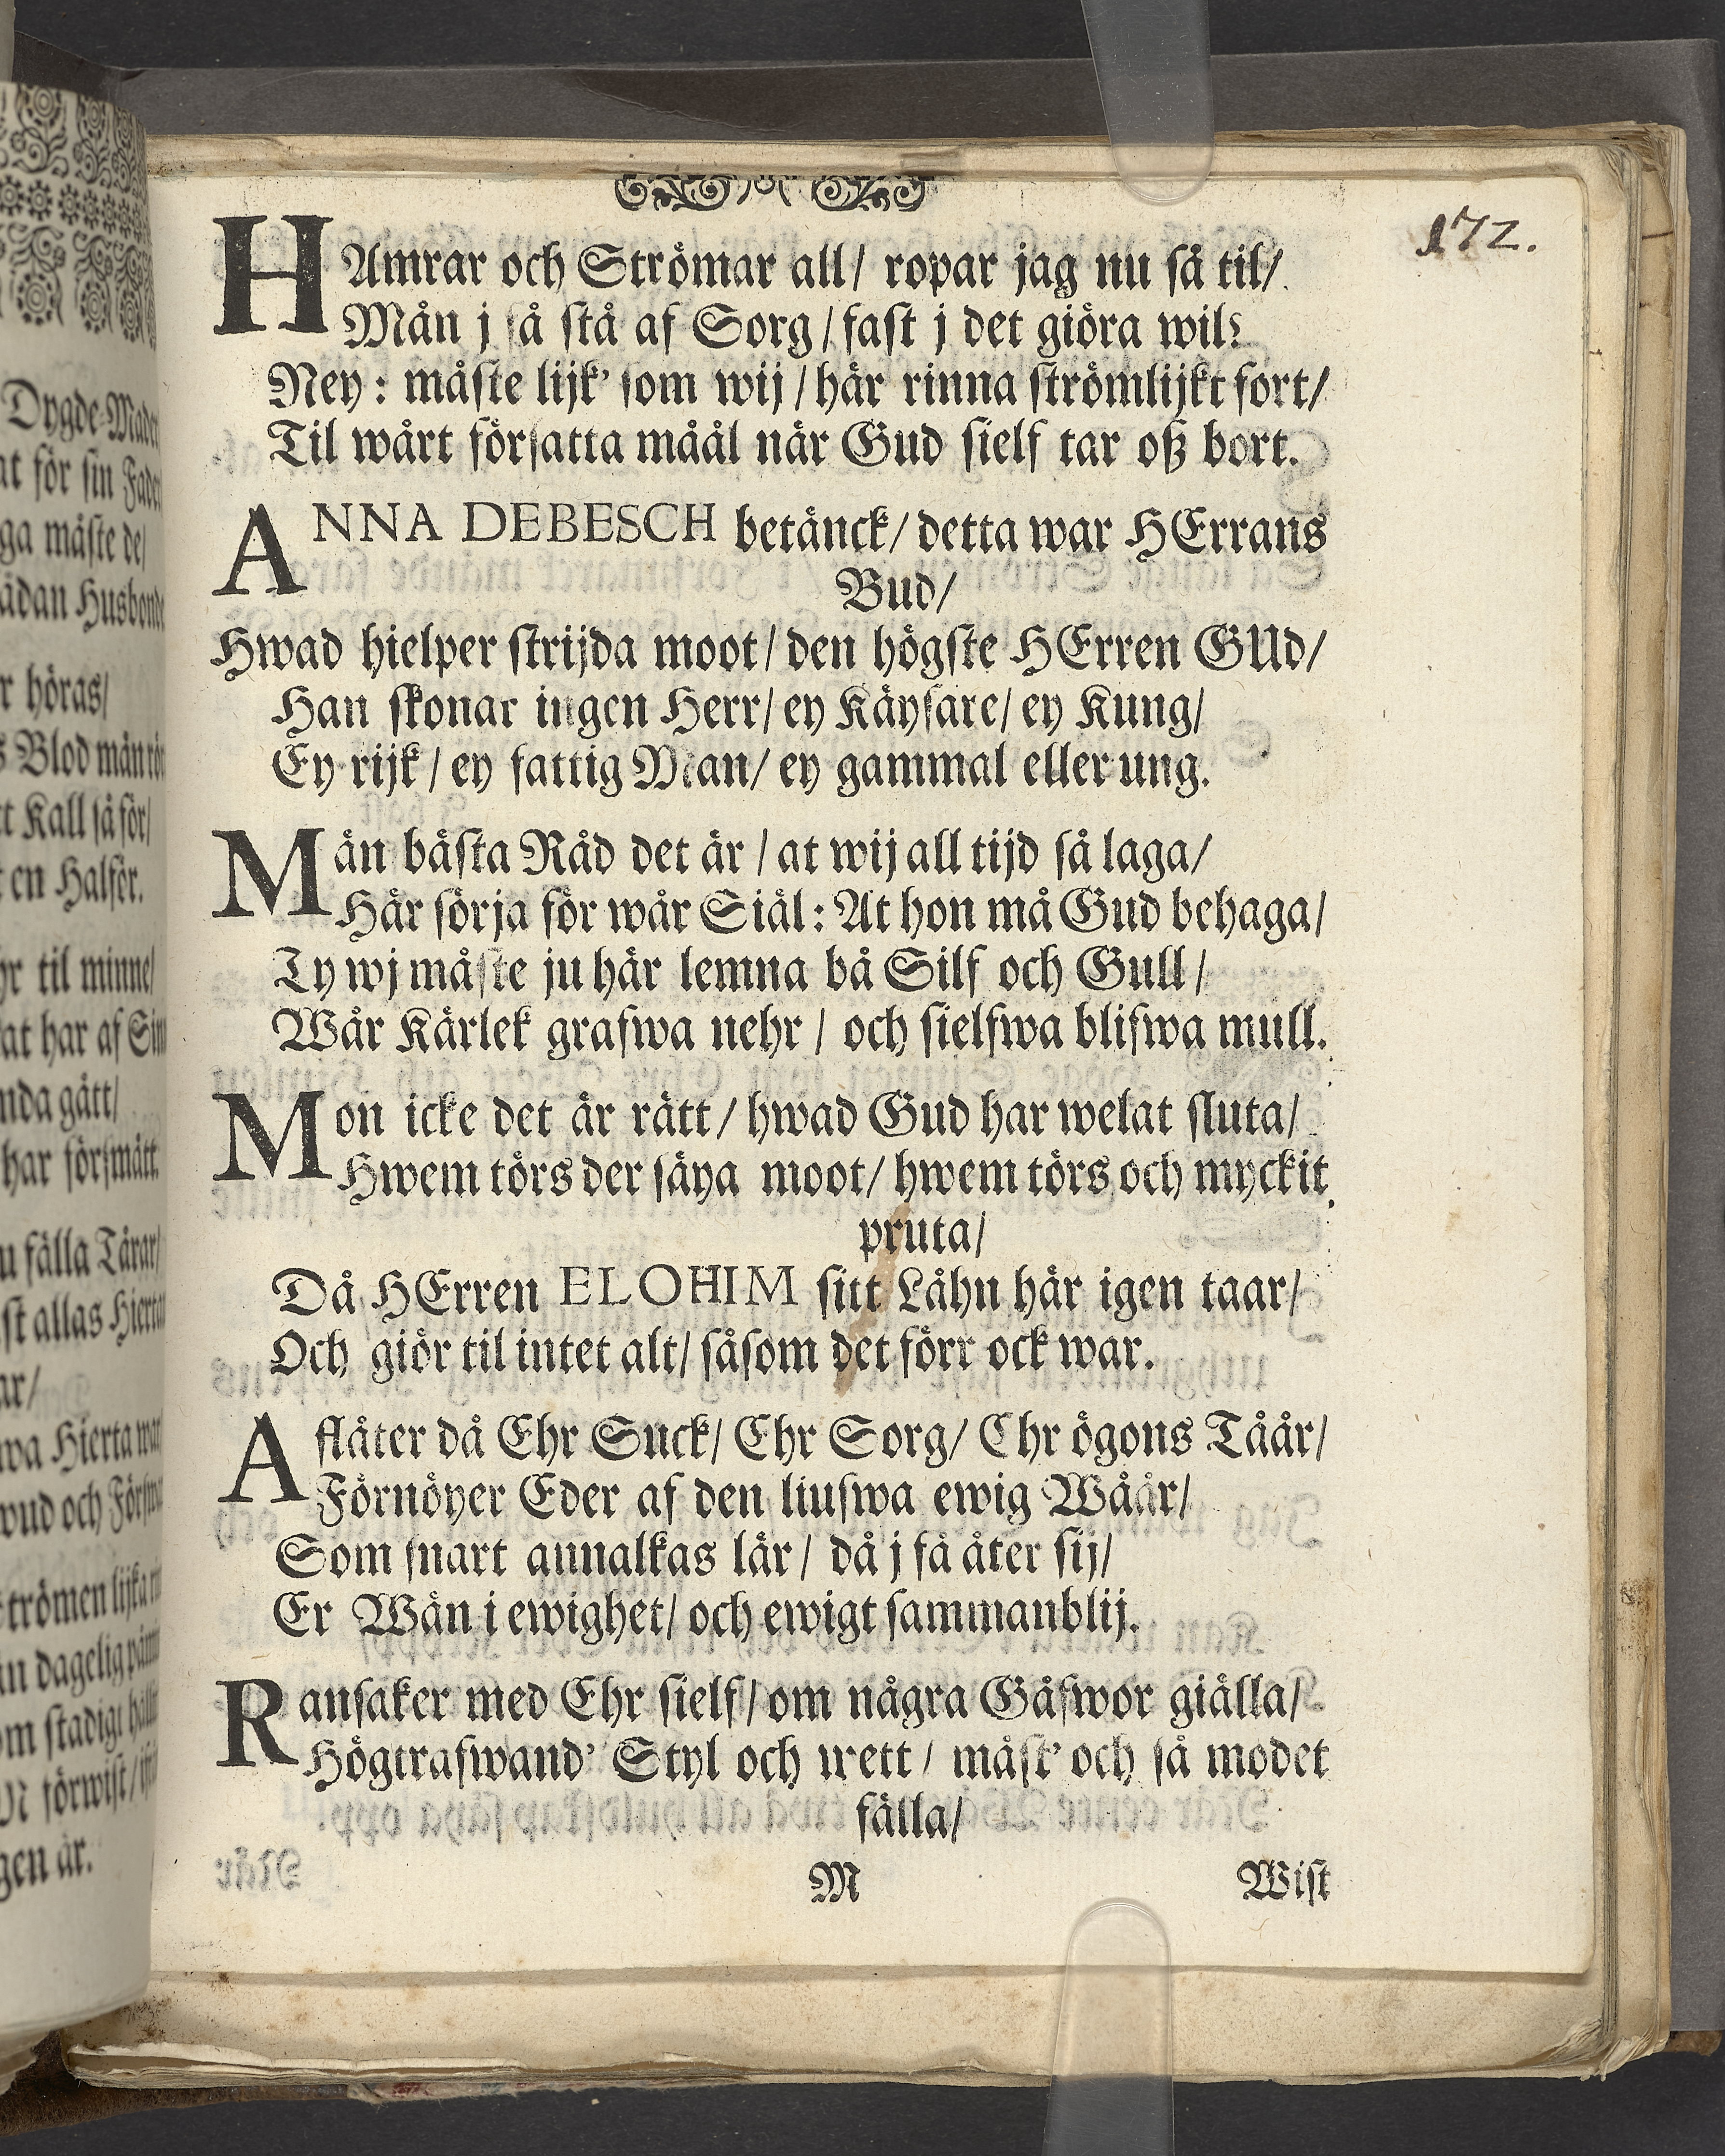 172.
HAmrar och Strömar all/ ropar jag nu så til/
Mån j så stå af Sorg/ fast j det giöra wil?
Ney: måste lijk' som wij/ här rinna strömlijkt fort/
Til wårt försatta måål när Gud sielf tar oß bort.
ANNA DEBESCH betänck/ detta war HErrans
Bud/
Hwad hielper strijda moot/ den högste HErren GUd/
Han skonar ingen Herr/ ey Käysare/ ey Kung/
Ey rijk/ ey fattig Man/ ey gammal eller ung.
Män bästa Råd det är/ at wij all tijd så laga/
Här sörja för wår Siäl: At hon må Gud behaga/
Ty wj måste ju här lemna bå Silf och Gull/
Wår Kärlek grafwa nehr/ och sielfwa blifwa mull.
Mon icke det är rätt/ hwad Gud har welat sluta/
Hwem törs der säya moot/ hwem törs och myckit
pruta/
Då HErren ELOHIM sitt Låhn här igen taar/
Och giör til intet alt/ såsom det förr ock war.
Aflåter då Ehr Suck/ Ehr Sorg/ Ehr ögons Tåår/
Förnöyer Eder af den liufwa ewig Wåår/
Som snart annalkas lär/ då j få åter sij/
Er Wän i ewighet/ och ewigt sammanblij.
Ransaker med Ehr sielf/ om några Gåfwor giälla/
Högtrafwand' Styl och wett/ måst' och så modet
fälla/
M Wist
Dygde-
at för sin
ga måste de/
ådan Husbonde
r höras/
s Blod mån
tt Kall så för/
t en Halfer.
hr til minne/
at har af
nda gått/
har försmått.
u fälla Tårar/
st allas
ar/
wa Hierta
wud och
trömen lijka
in dagelig
om stadigt
N förwist/
gen är.